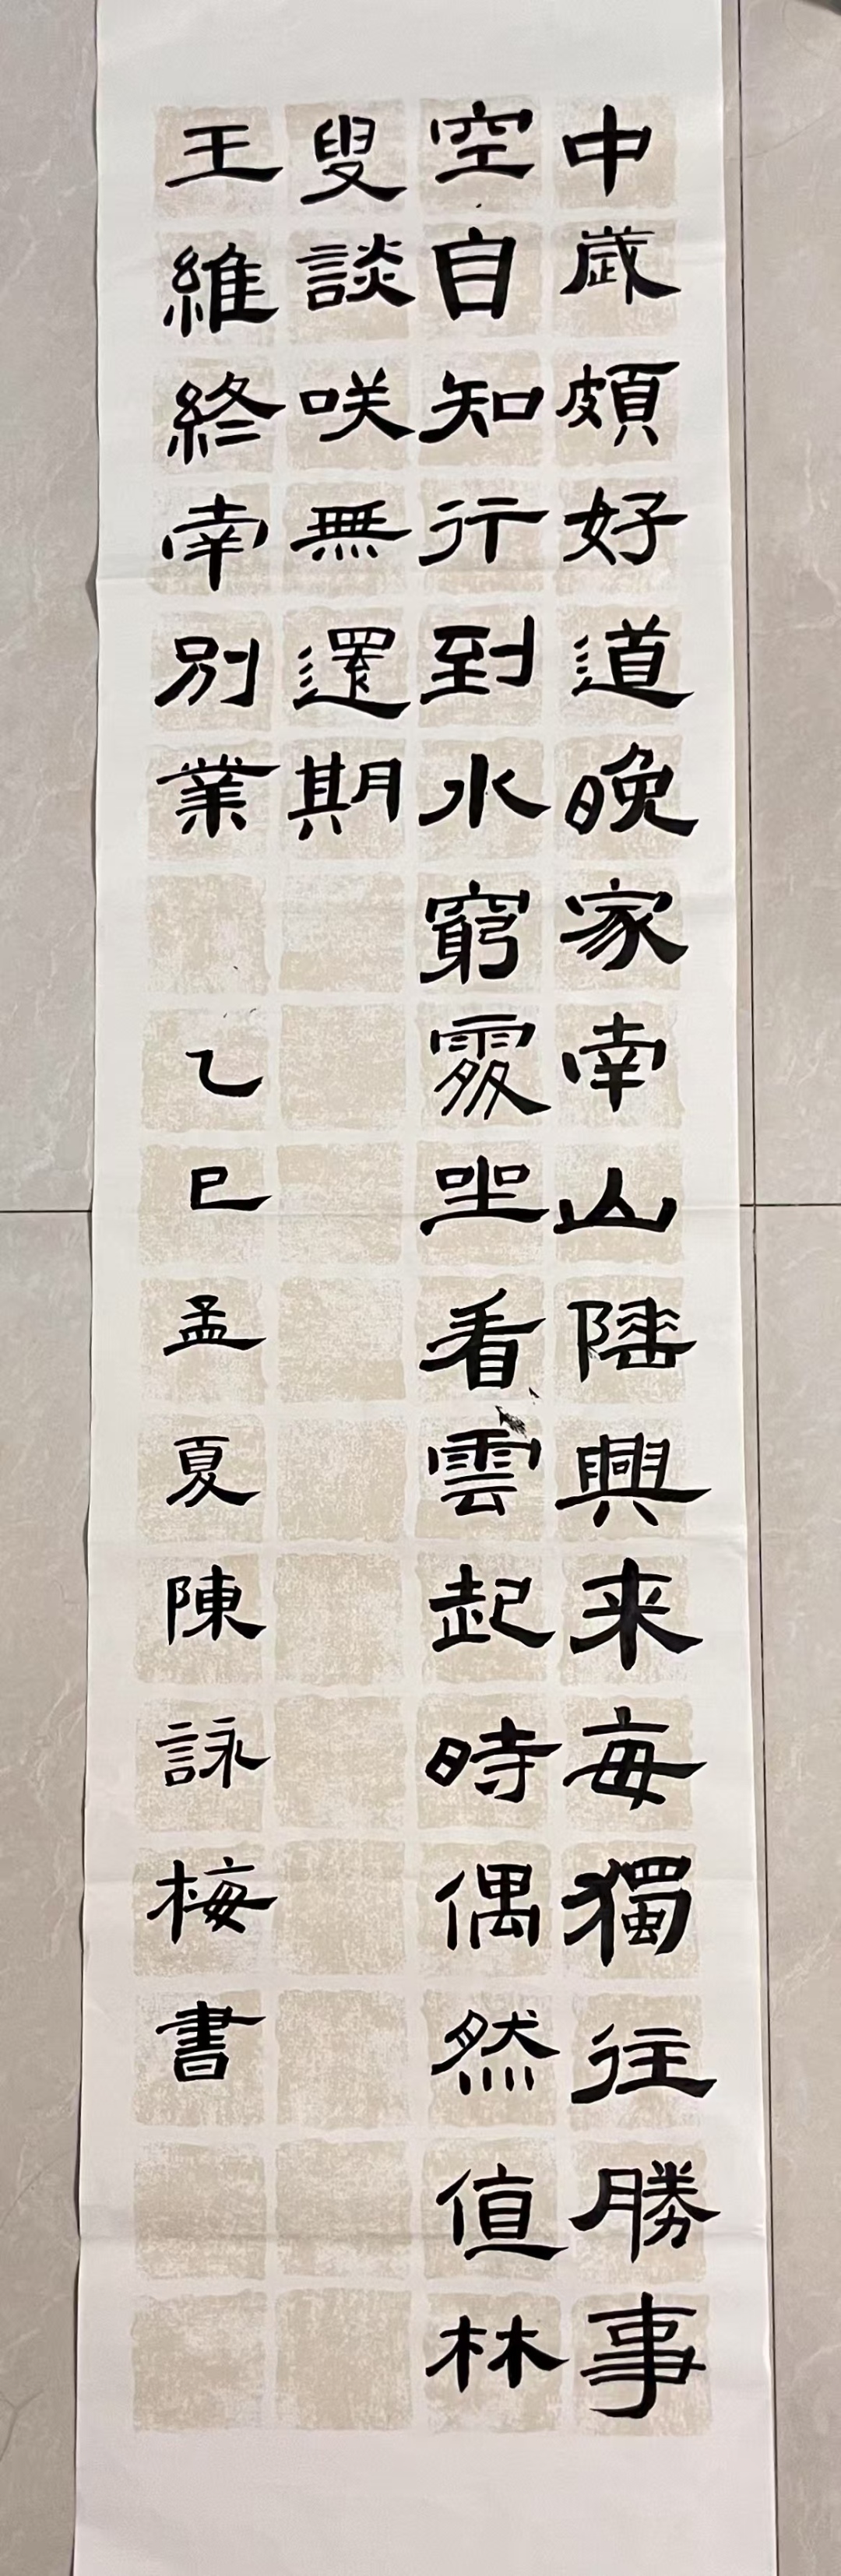 中歲頗好道晚家南山陲興来每獨往勝事
空自知行到水窮處坐看雲起時偶然值林
叟談咲無還期
王維終南別業 乙巳孟夏陳詠梅書